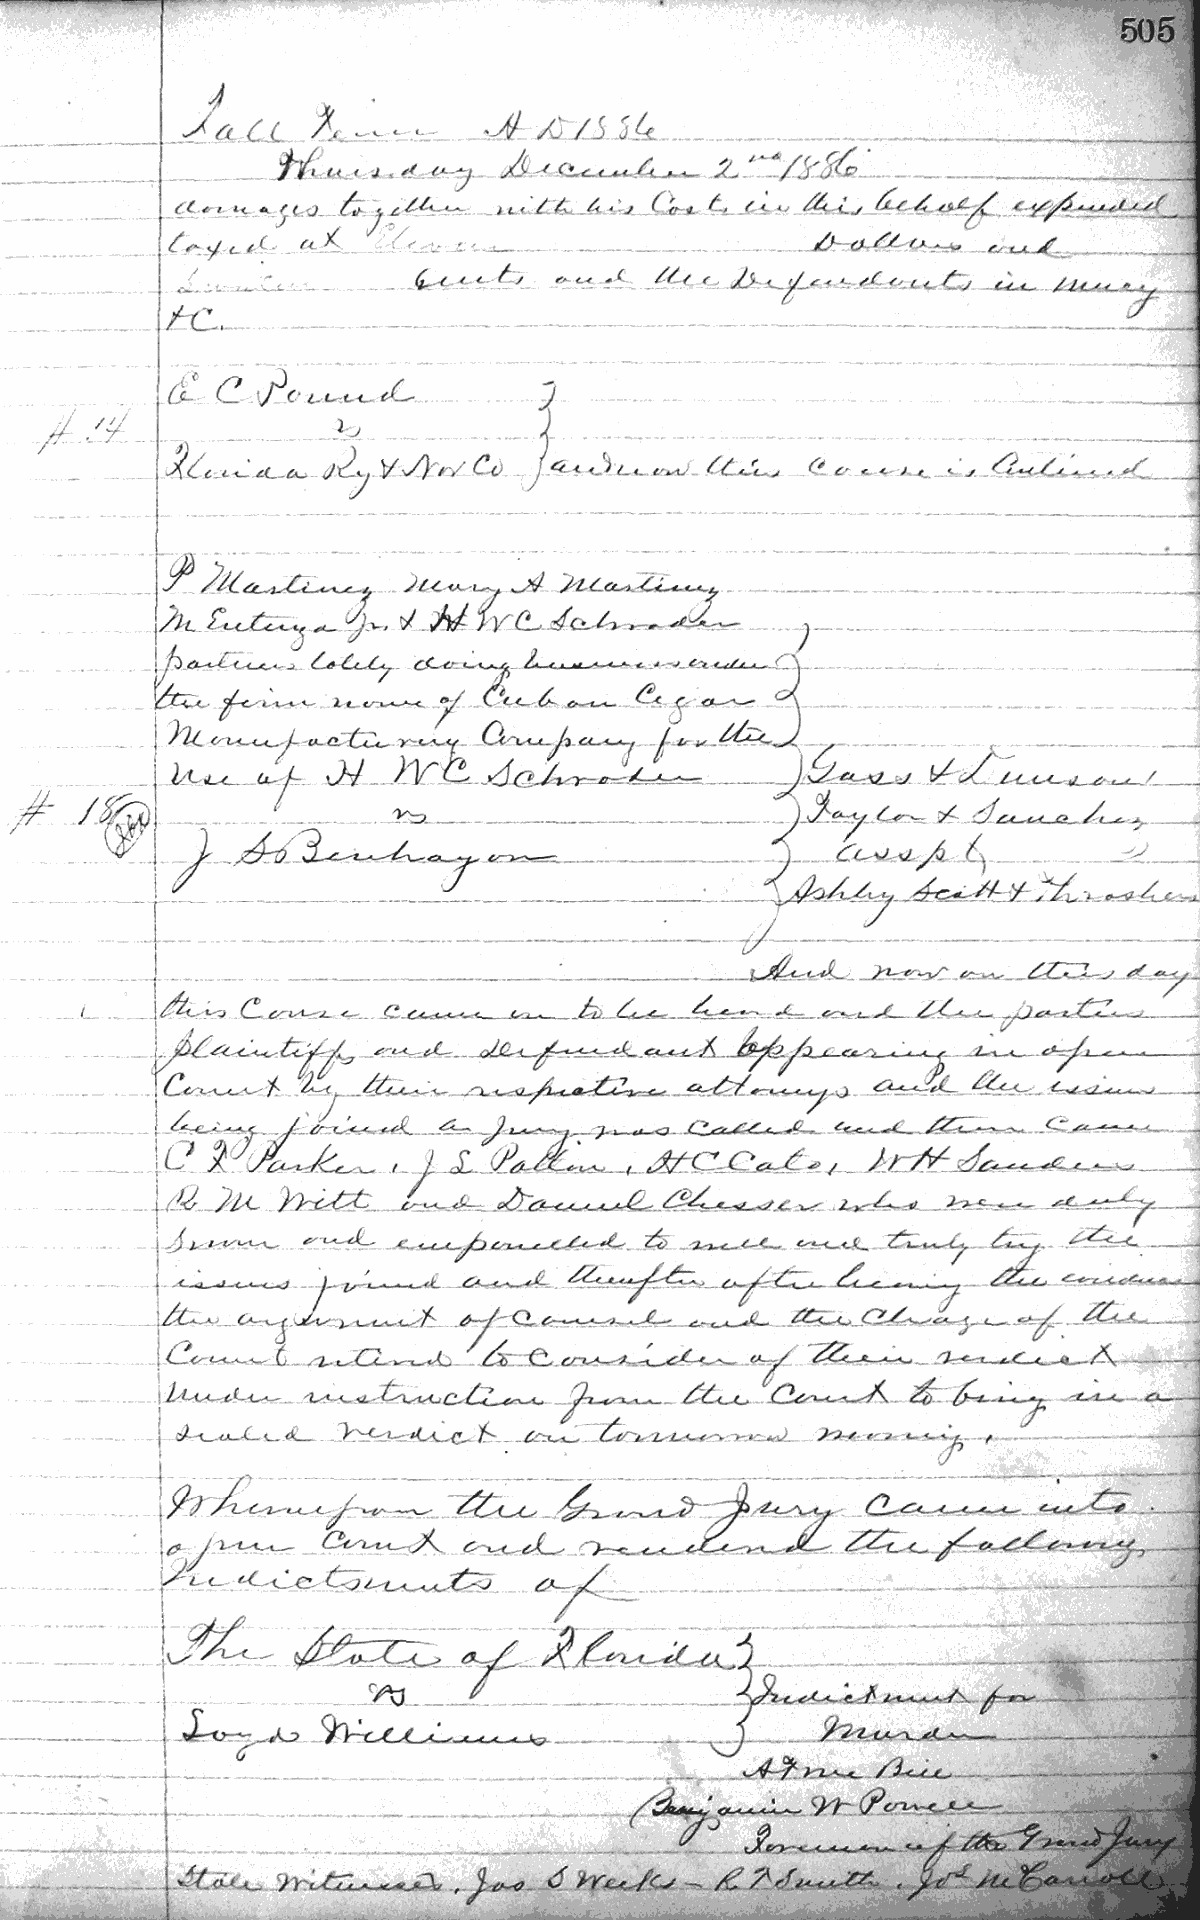 505
Fall Term A D 1886
Thursday December 2nd 1886
damages together with his Costs in this behalf expended
taxed at Eleven Dollars and
Cents and the Defendants in mercy
&C.
E C Pound
vs
# 14
Florida Ry & Nav Co and now this cause is Continued
P Martinez Mary A Martinez
M Enturza Jr. & H W C Schrader
partners lately doing business under
the firm name of Cuban Cegar
Manufacturing Company for the
Use of H W C Schrader
Gass &
# 18
vs
Taylor & Sanchez
J S Benhayon
asspt
Ashby Scott & Thrashers
And now on this day
this Cause came on to be heard and the parties
plaintiffs and Defendant appearing in open
Court by their respective attorneys and the issues
being joined a Jury was called and there came
C F Parker, J S Patten, H C Cato, W H Sanders
R M Witt and Daniel Chesser who were duly
sworn and empanelled to well and truly try the
issues joined and thereafter after hearing the evidence
the argument of Counsel and the Charge of the
Court retired to consider of their verdict
under instruction from the Court to bring in a
sealed verdict on tomorrow morning.
Whereupon the Grand Jury came into
open Court and rendered the following
Indictments of
The State of Florida
vs
Indictment for
Loyd Williams
Murder
A True Bill
Benjamin W Powell
Foreman of the Grand Jury
State Witnesses, Jas S Weeks - R T Smith, Jos McCarroll